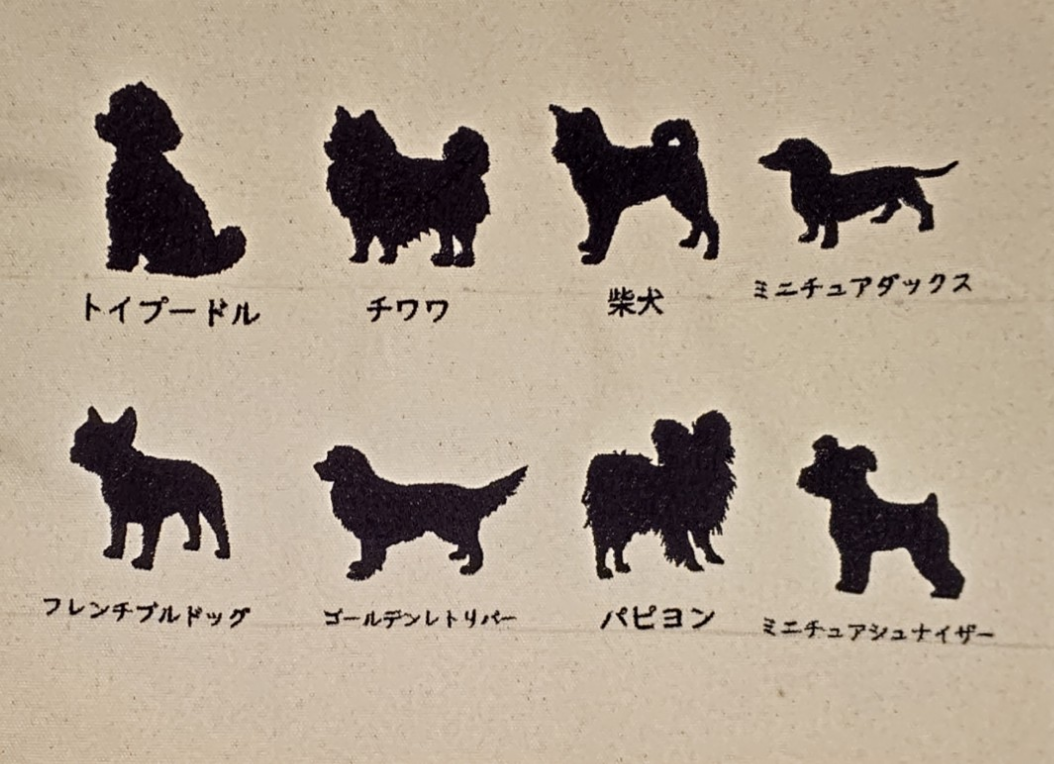 トイプードル
チワワ
柴犬
ミニチュアダックス
フレンチブルドッグ
ゴールデンレトリバー
パピヨン
ミニチュアシュナイザー